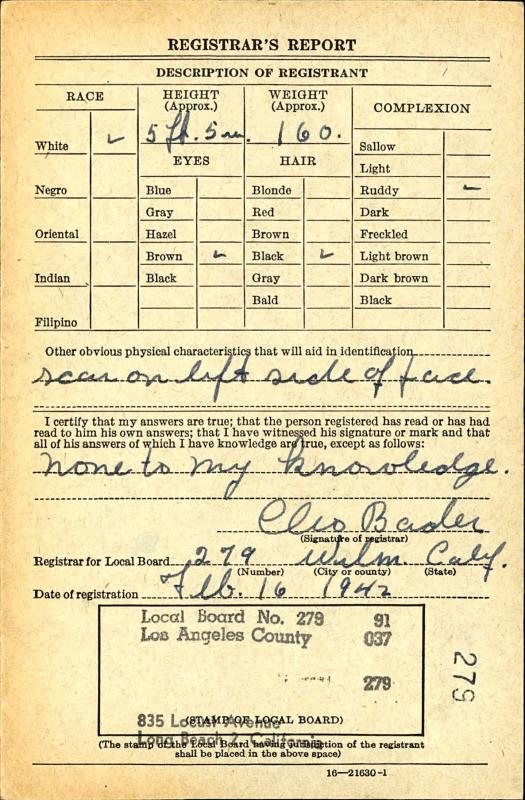 REGISTRAR'S REPORT
DESCRIPTION OF REGISTRANT
RACE
HEIGHT (Approx.)
WEIGHT (Approx.)
COMPLEXION
5 ft. 5 in.
160.
White ✓
Sallow
EYES
HAIR
Light
Negro
Blue
Blonde
Ruddy ✓
Gray
Red
Dark
Oriental
Hazel
Brown
Freckled
Brown ✓
Black ✓
Light brown
Indian
Black
Gray
Dark brown
Bald
Black
Filipino
Other obvious physical characteristics that will aid in identification
scar on left side of face.
I certify that my answers are true; that the person registered has read or has had
read to him his own answers; that I have witnessed his signature or mark and that
all of his answers of which I have knowledge are true, except as follows:
none to my knowledge.
Cleo Bader
(Signature of registrar)
Registrar for Local Board 279 Wilm Calif.
(Number) (City or county) (State)
Date of registration Feb. 16 1942
Local Board No. 279 91
Los Angeles County 037
279
279
835 Locust Avenue
(STAMP OF LOCAL BOARD)
Long Beach 2, California
(The stamp of the Local Board having jurisdiction of the registrant
shall be placed in the above space)
16—21630-1